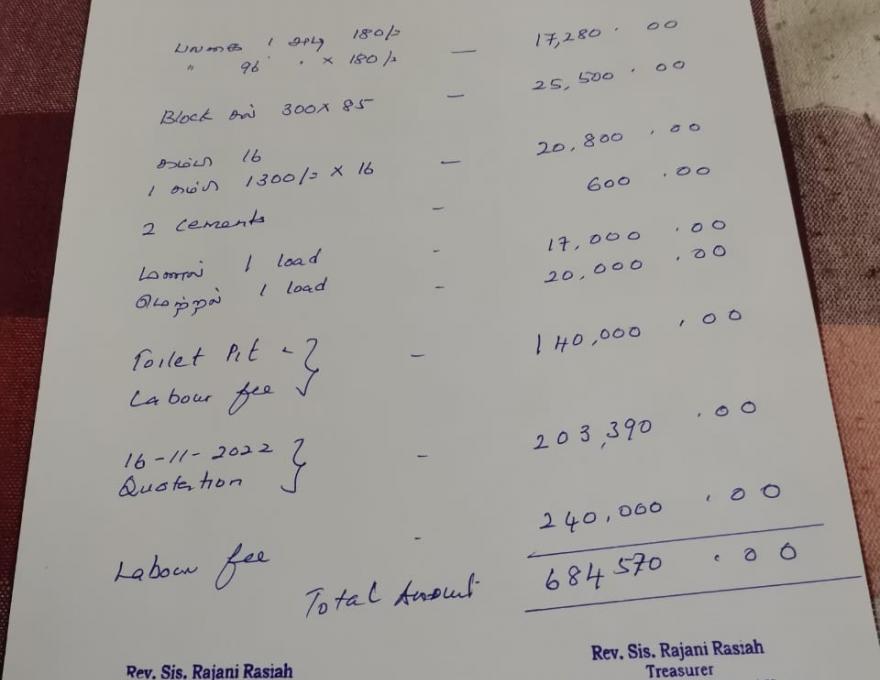 பலகை 1 அடி 180/=
" 96 " × 180/= — 17,280.00
Block கல் 300 × 85 — 25,500.00
கம்பி 16
1 கம்பி 1300/= × 16 — 20,800.00
2 cements - 600.00
மணல் 1 load - 17,000.00
மெற்றல் 1 load - 20,000.00
Toilet Pit -
Labour fee - 140,000.00
16-11-2022
Quotertion - 203,390.00
Labour fee - 240,000.00
Total Amount 684570.00
Rev. Sis. Rajani Rasiah
Rev. Sis. Rajani Rasiah
Treasurer